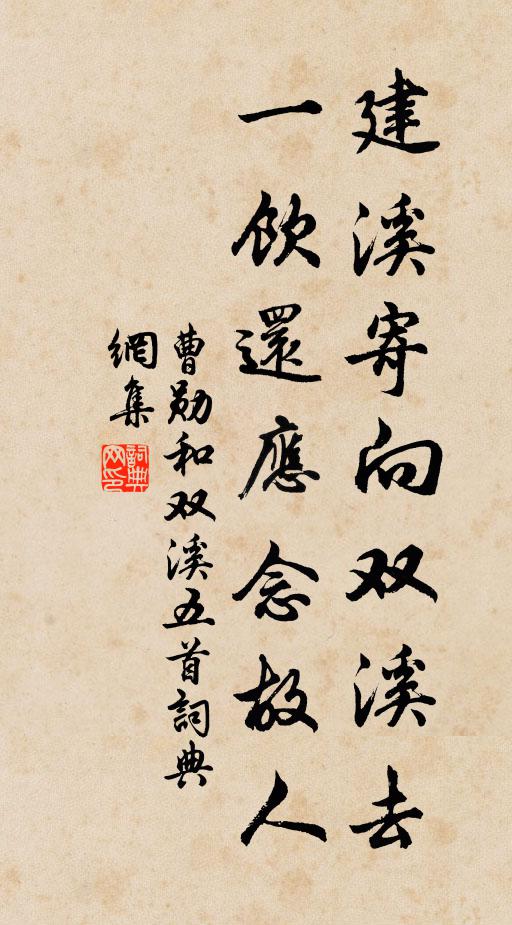 建溪寄向双溪去
一飲還應念故人
曹勛和双溪五首詞典
網集
詞典
网印